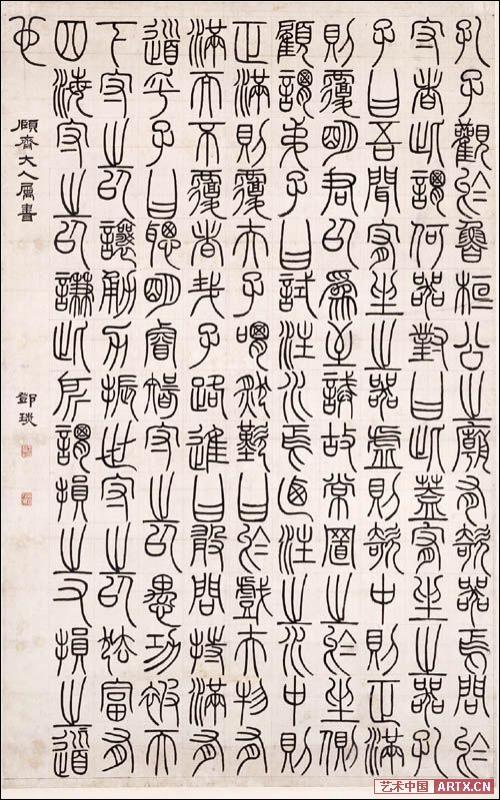 孔子觀於魯桓公之廟有欹器焉問於
守者此謂何器對曰此蓋宥坐之器孔
子曰吾聞宥坐之器虛則欹中則正滿
則覆明君以為至誡故常置之於坐側
顧謂弟子曰試注水焉迺注之水中則
正滿則覆夫子喟然歎曰於戲夫物有
滿而不覆者哉子路進曰敢問持滿有
道乎子曰聰明睿智守之以愚功被天
下守之以讓勇力振世守之以怯富有
四海守之以謙此所謂損之又損之道
也
頤齋大人屬書 鄧琰
艺术中国 ARTX.CN